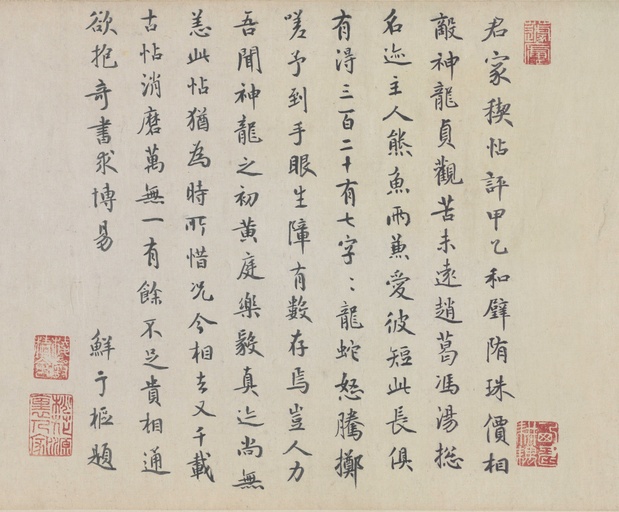 君家稧帖評甲乙和璧隋珠價相
敵神龍貞觀苦未遠趙葛馮湯揔
名迹主人熊魚兩兼愛彼短此長俱
有得三百二十有七字〻龍蛇怒騰擲
嗟予到手眼生障有數存焉豈人力
吾聞神龍之初黄庭樂毅真迹尚無
恙此帖猶為時所惜況今相去又千載
古帖消磨萬無一有餘不足貴相通
欲抱奇書求博易 鮮于樞題